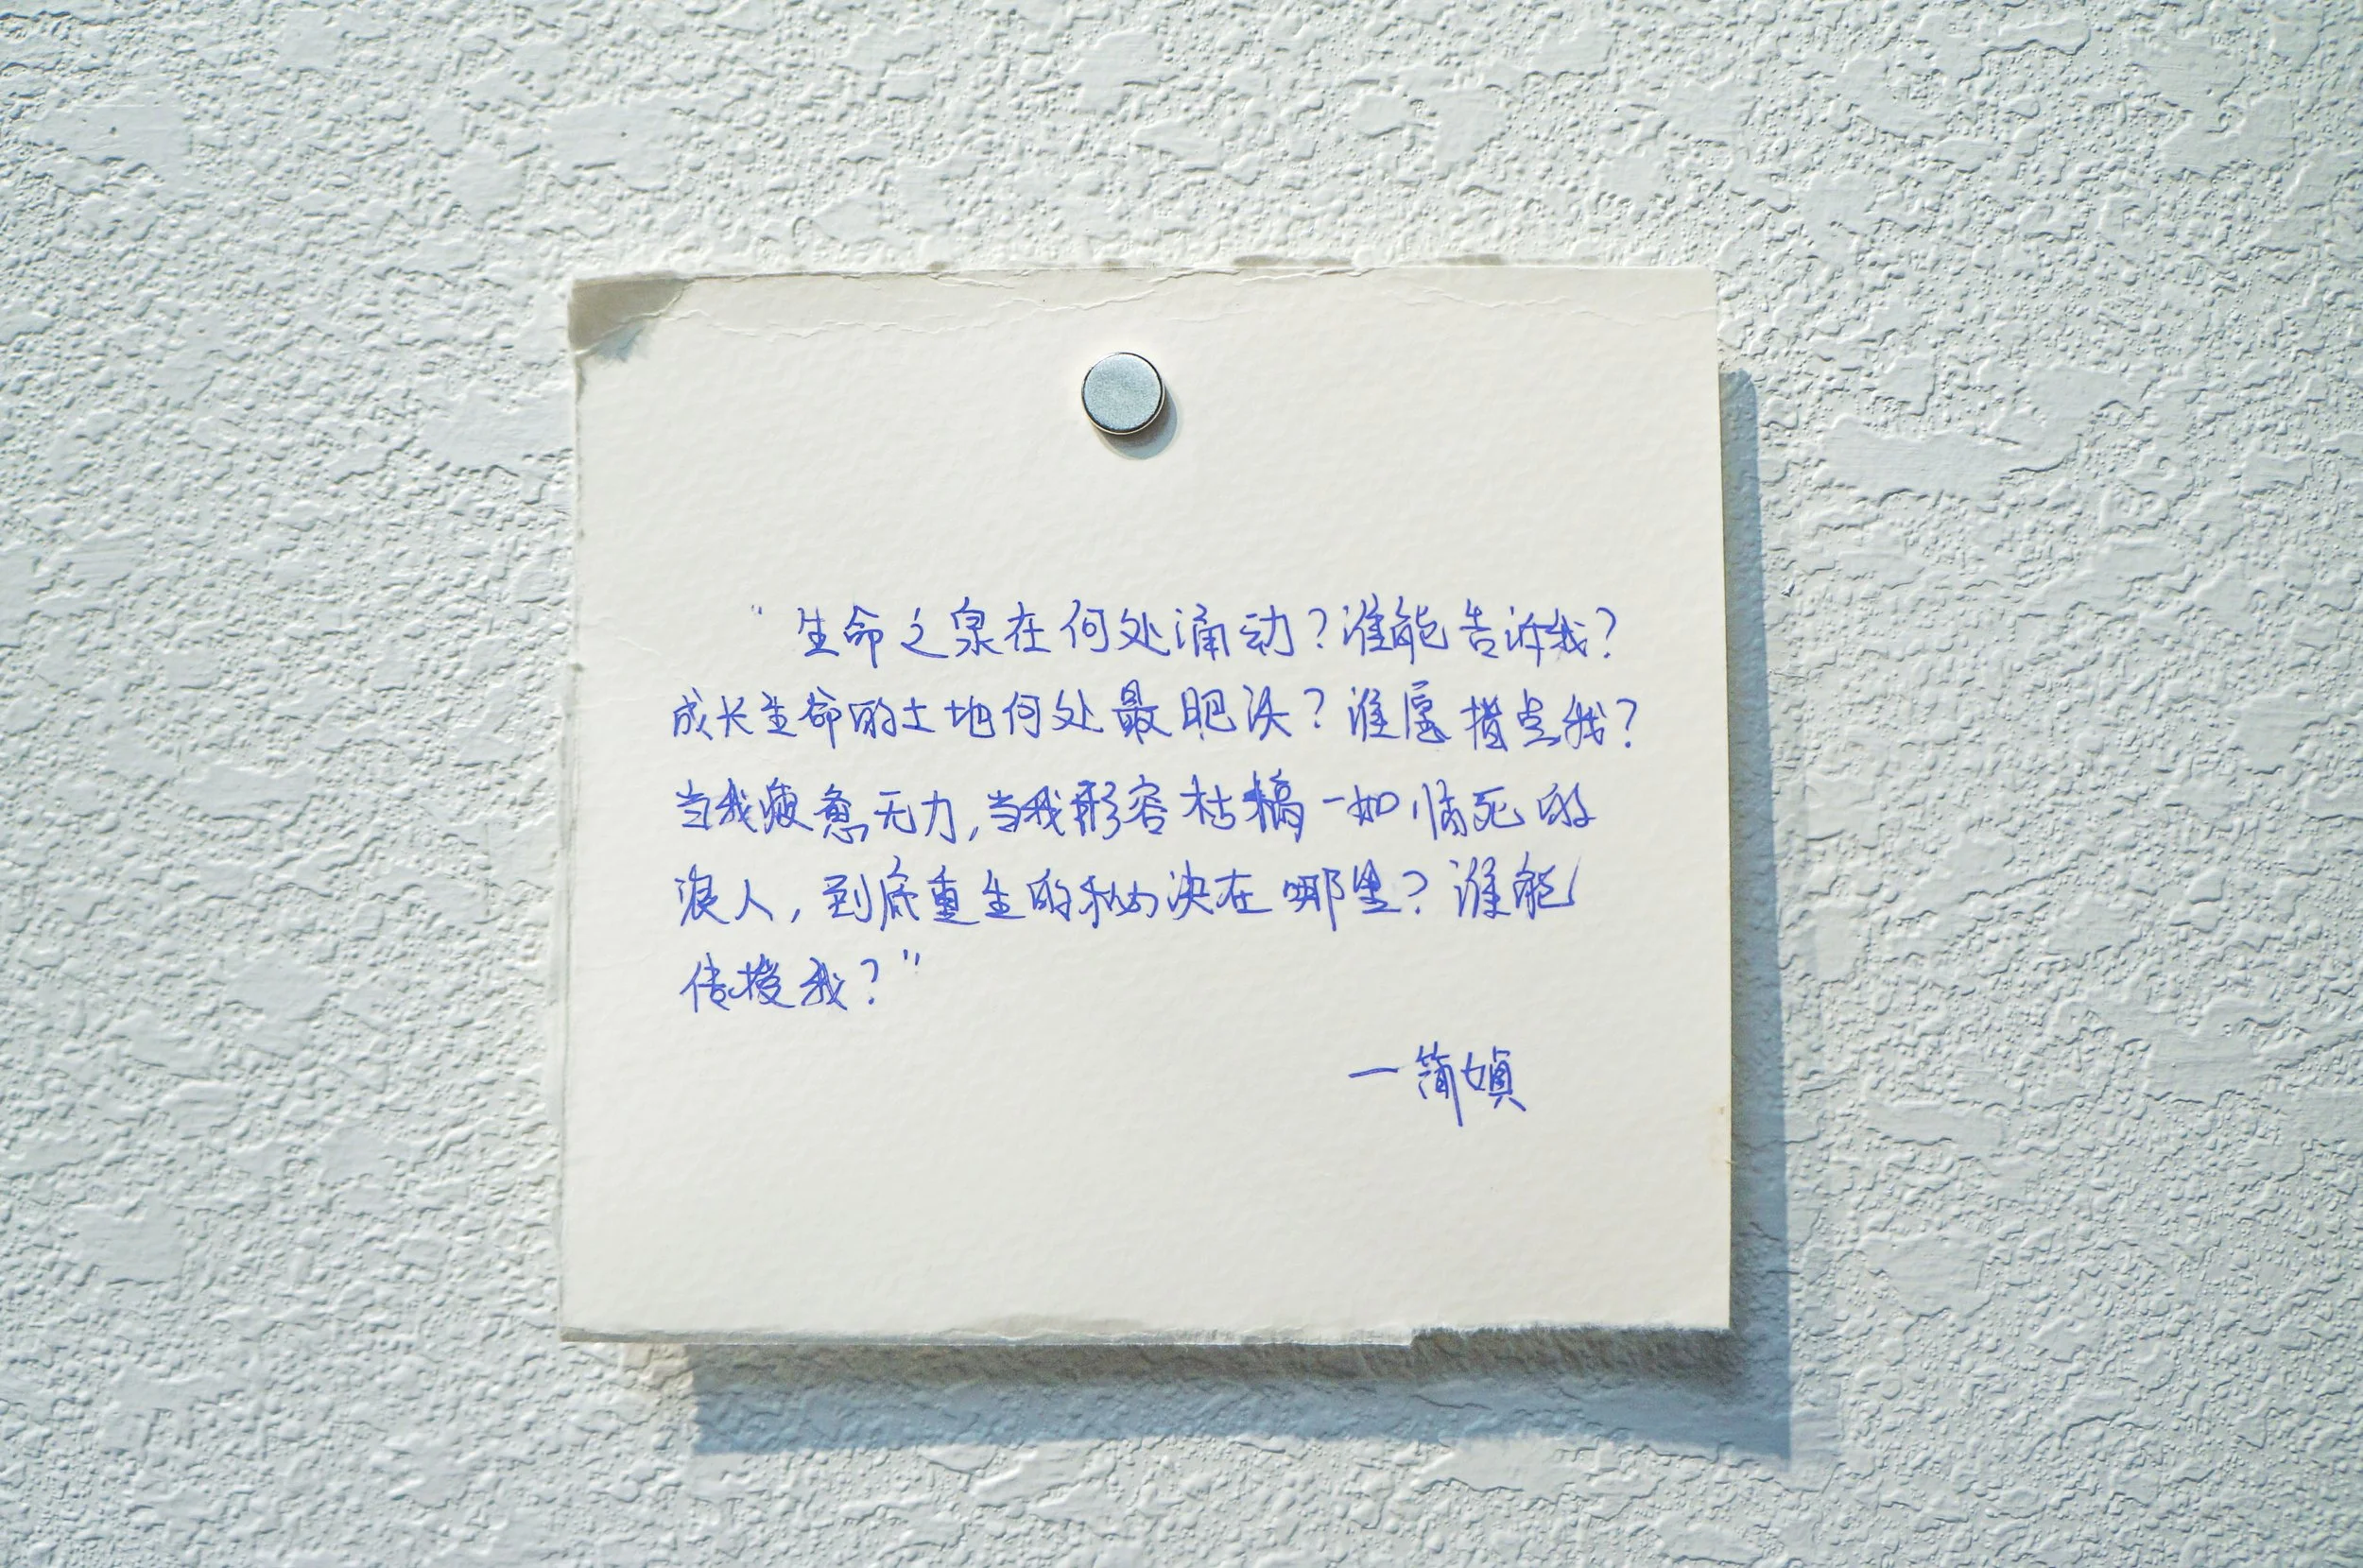 “生命之泉在何处涌动？谁能告诉我？
成长生命的土地何处最肥沃？谁愿指点我？
当我疲惫无力，当我形容枯槁一如临死的
浪人，到底重生的秘诀在哪里？谁能
传授我？”
—简媜